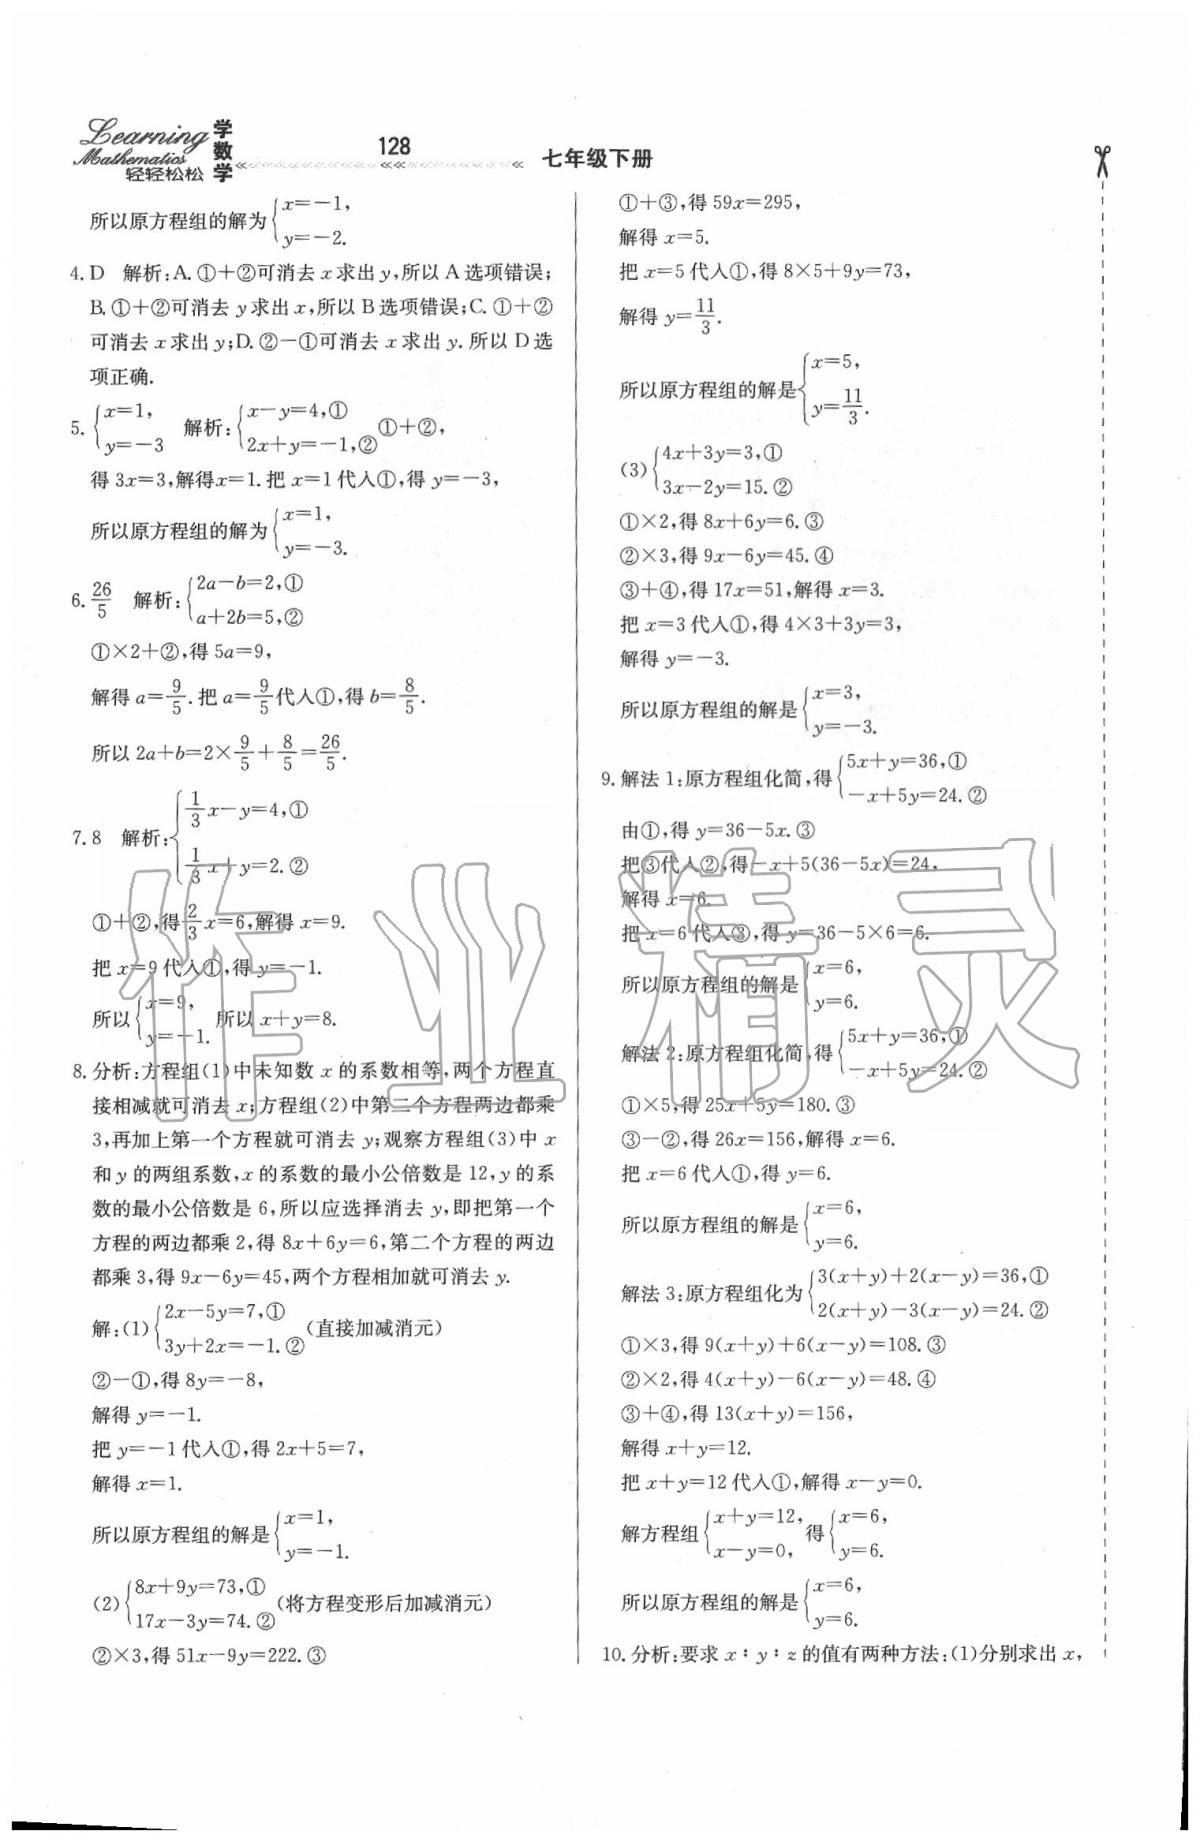 Learning
Mathematics
轻轻松松
学数学
128
七年级下册
所以原方程组的解为{x=-1,
y=-2.
4. D 解析:A. ①+②可消去 x 求出 y,所以 A 选项错误;
B. ①+②可消去 y 求出 x,所以 B 选项错误;C. ①+②
可消去 x 求出 y;D. ②-①可消去 x 求出 y. 所以 D 选
项正确.
5. {x=1,
y=-3 解析:{x-y=4,①
2x+y=-1,② ①+②,
得 3x=3,解得x=1. 把 x=1 代入①,得 y=-3,
所以原方程组的解为{x=1,
y=-3.
6. 26/5 解析:{2a-b=2,①
a+2b=5,②
①×2+②,得 5a=9,
解得 a=9/5. 把 a=9/5代入①,得 b=8/5.
所以 2a+b=2×9/5+8/5=26/5.
7. 8 解析:{1/3x-y=4,①
1/3x+y=2. ②
①+②,得2/3x=6,解得 x=9.
把 x=9 代入①,得 y=-1.
所以{x=9,
y=-1. 所以 x+y=8.
8. 分析:方程组(1)中未知数 x 的系数相等,两个方程直
接相减就可消去 x;方程组(2)中第二个方程两边都乘
3,再加上第一个方程就可消去 y;观察方程组(3)中 x
和 y 的两组系数,x 的系数的最小公倍数是 12,y 的系
数的最小公倍数是 6,所以应选择消去 y,即把第一个
方程的两边都乘 2,得 8x+6y=6,第二个方程的两边
都乘 3,得 9x-6y=45,两个方程相加就可消去 y.
解:(1){2x-5y=7,①
3y+2x=-1. ② (直接加减消元)
②-①,得 8y=-8,
解得 y=-1.
把 y=-1 代入①,得 2x+5=7,
解得 x=1.
所以原方程组的解是{x=1,
y=-1.
(2){8x+9y=73,①
17x-3y=74. ② (将方程变形后加减消元)
②×3,得 51x-9y=222. ③
①+③,得 59x=295,
解得 x=5.
把 x=5 代入①,得 8×5+9y=73,
解得 y=11/3.
所以原方程组的解是{x=5,
y=11/3.
(3){4x+3y=3,①
3x-2y=15. ②
①×2,得 8x+6y=6. ③
②×3,得 9x-6y=45. ④
③+④,得 17x=51,解得 x=3.
把 x=3 代入①,得 4×3+3y=3,
解得 y=-3.
所以原方程组的解是{x=3,
y=-3.
9. 解法 1:原方程组化简,得{5x+y=36,①
-x+5y=24. ②
由①,得 y=36-5x. ③
把③代入②,得-x+5(36-5x)=24,
解得 x=6.
把 x=6 代入③,得 y=36-5×6=6.
所以原方程组的解是{x=6,
y=6.
解法 2:原方程组化简,得{5x+y=36,①
-x+5y=24. ②
①×5,得 25x+5y=180. ③
③-②,得 26x=156,解得 x=6.
把 x=6 代入①,得 y=6.
所以原方程组的解是{x=6,
y=6.
解法 3:原方程组化为{3(x+y)+2(x-y)=36,①
2(x+y)-3(x-y)=24. ②
①×3,得 9(x+y)+6(x-y)=108. ③
②×2,得 4(x+y)-6(x-y)=48. ④
③+④,得 13(x+y)=156,
解得 x+y=12.
把 x+y=12 代入①,解得 x-y=0.
解方程组{x+y=12,
x-y=0, 得{x=6,
y=6.
所以原方程组的解是{x=6,
y=6.
10. 分析:要求 x∶y∶z 的值有两种方法:(1)分别求出 x,
作业精灵